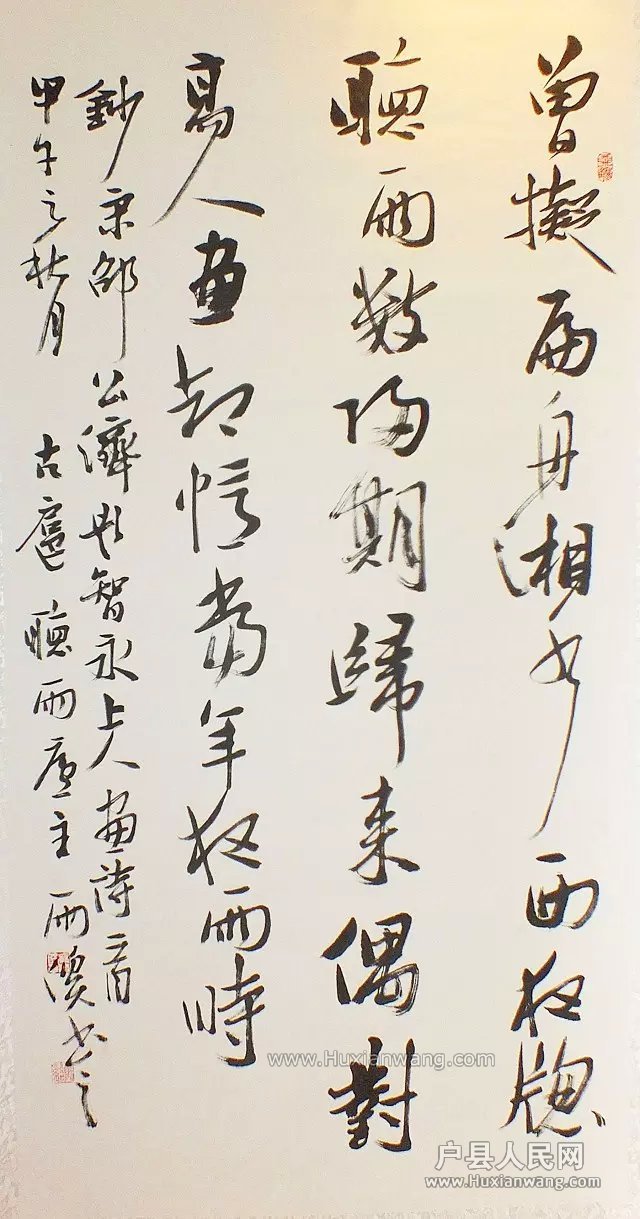 曾擬扁舟湘水西夜牕
聽雨數歸期歸来偶對
高人畫却憶當年夜雨時
鈔宋邵公濟題智永上人畫詩一首
甲午之秋月 古扈聽雨廬主雨溪書之
www.Huxianwang.com
户县人民网
www.Huxianwang.com